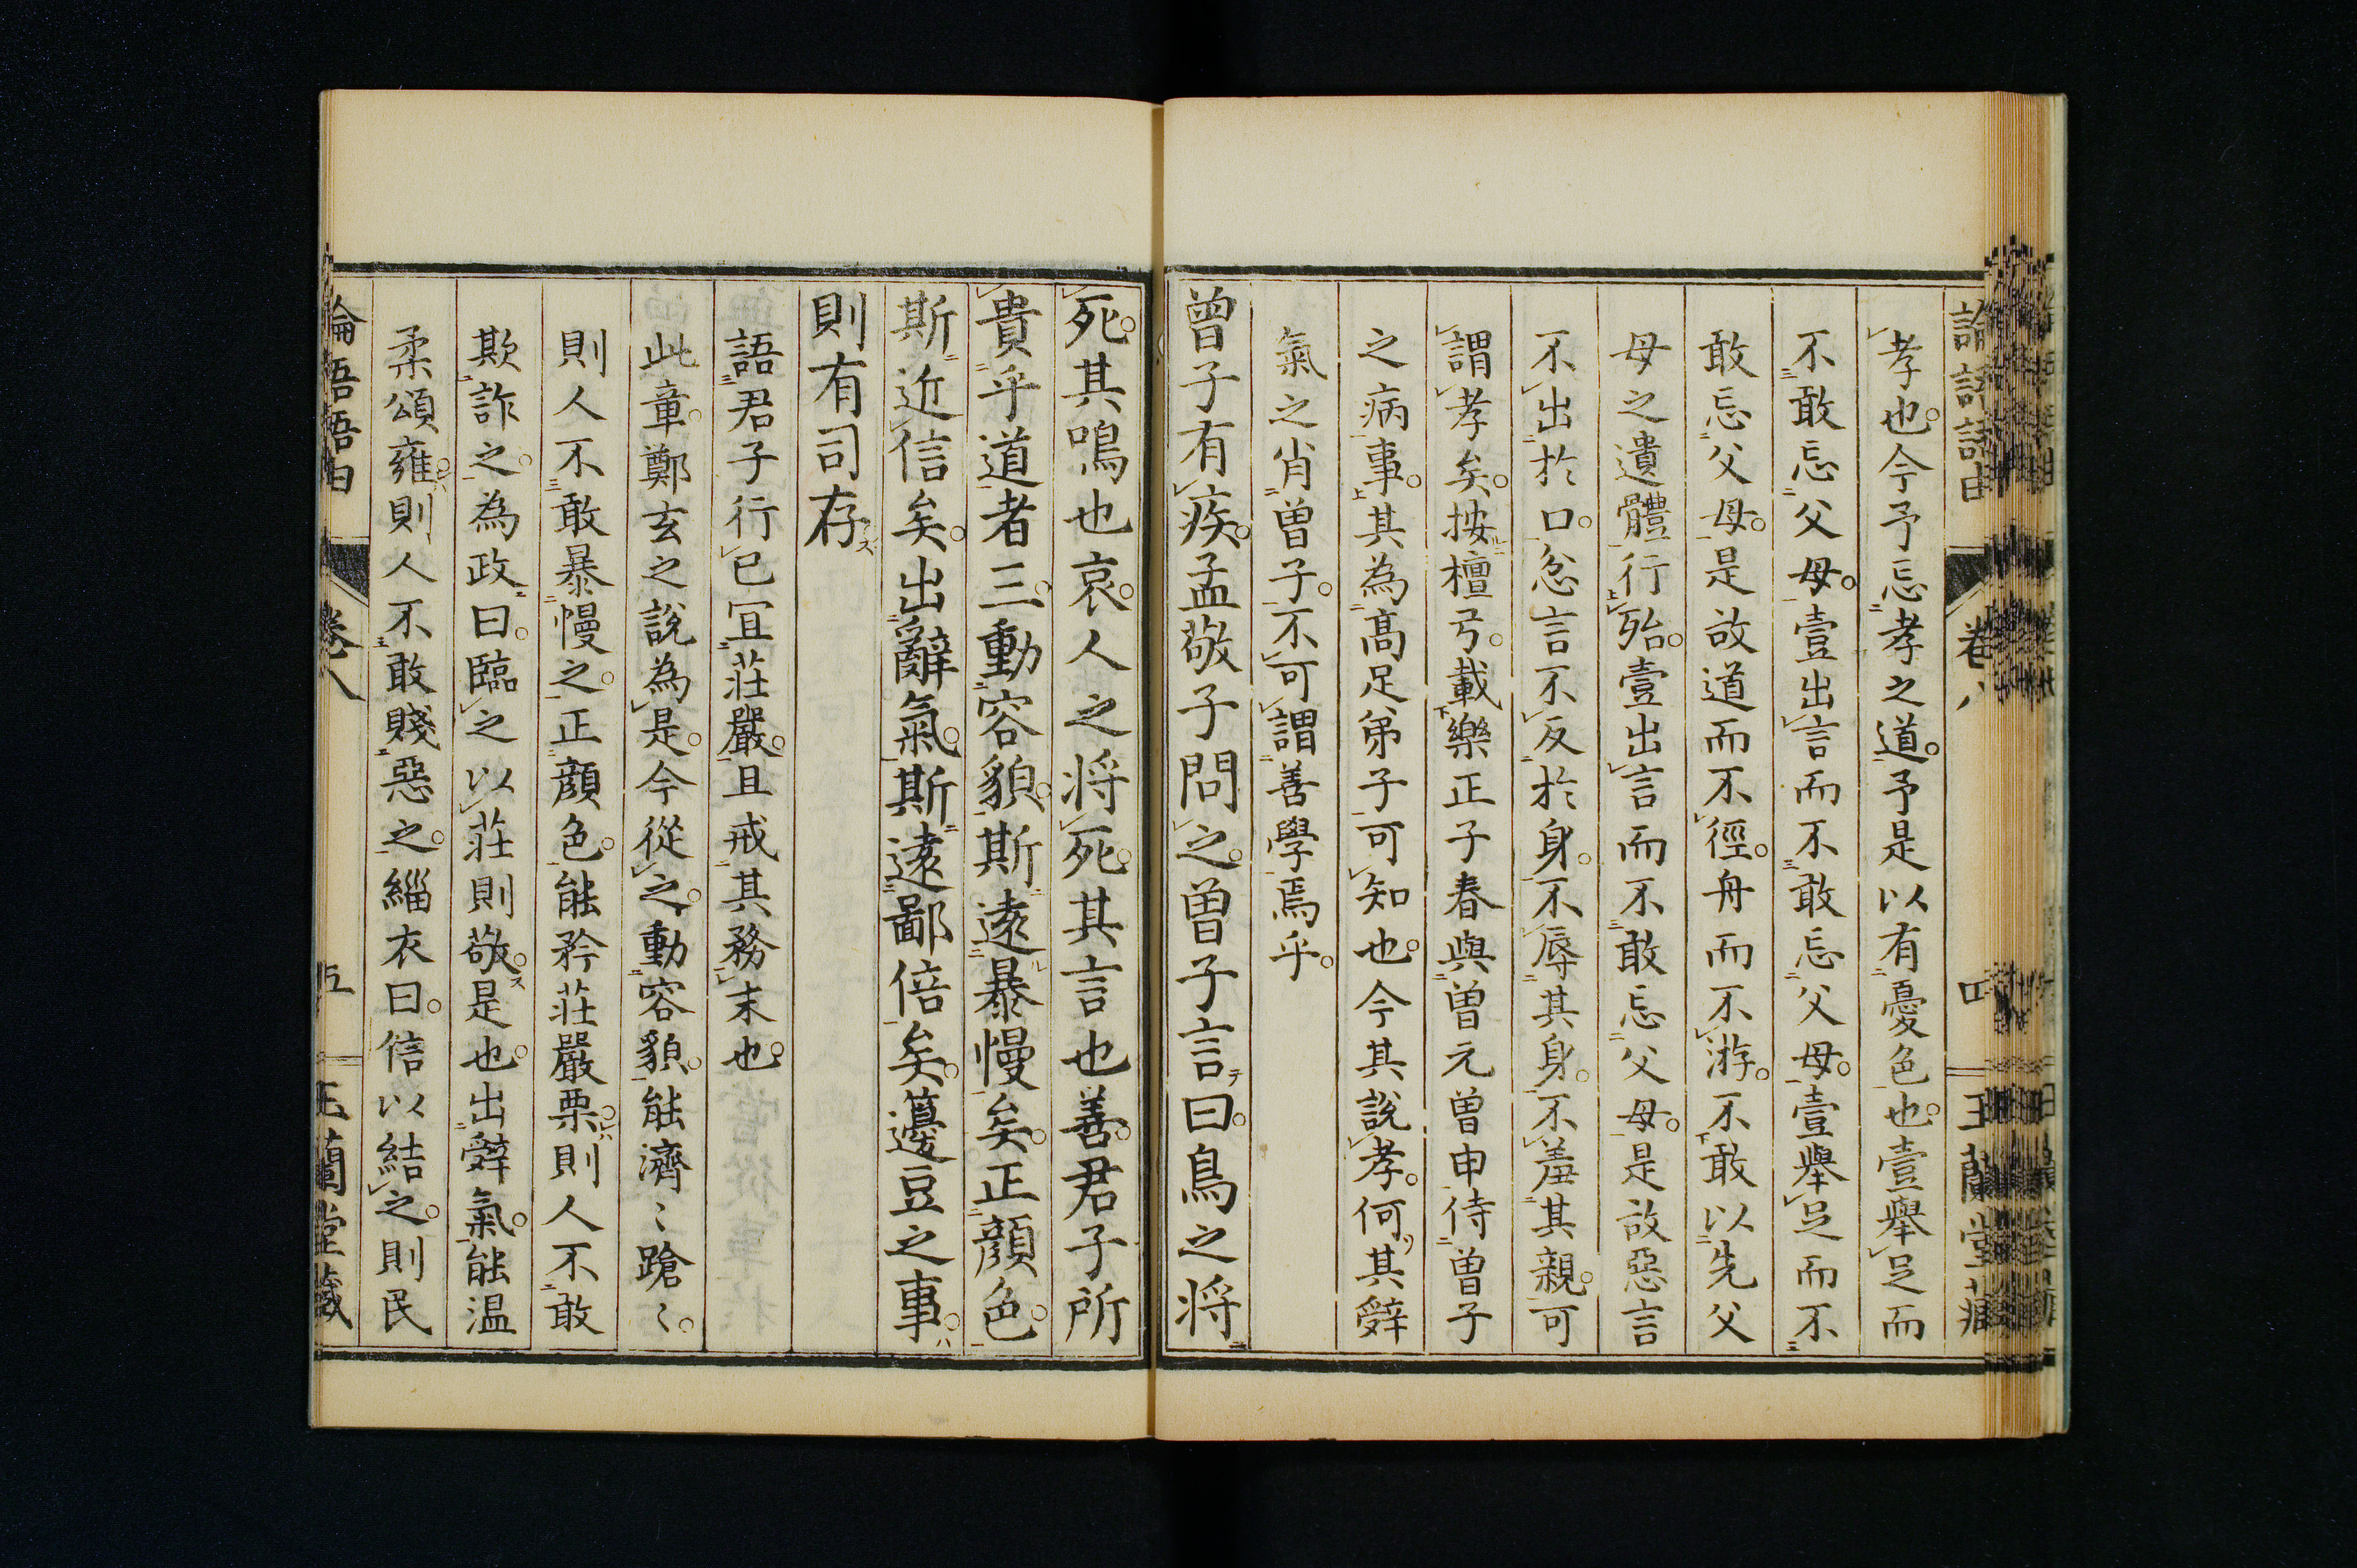 論語語由 卷八 四 玉蘭堂藏
孝也。今予忘孝之道。予是以有憂色也。壹舉足而
不敢忘父母。壹出言而不敢忘父母。壹舉足而不
敢忘父母。是故道而不徑。舟而不游。不敢以先父
母之遺體行殆。壹出言而不敢忘父母。是故惡言
不出於口。忿言不反於身。不辱其身。不羞其親。可
謂孝矣。按檀弓。載樂正子春與曾元曾申侍曾子
之病事。其為高足弟子可知也。今其說孝。何其辭
氣之肖曾子。不可謂善學焉乎。
曾子有疾。孟敬子問之。曾子言曰。鳥之將
死。其鳴也哀。人之將死。其言也善。君子所
貴乎道者三。動容貌。斯遠暴慢矣。正顏色。
斯近信矣。出辭氣。斯遠鄙倍矣。籩豆之事。
則有司存
語君子行已宜莊嚴。且戒其務末也。
此章。鄭玄之說為是。今從之。動容貌。能濟〻蹌〻。
則人不敢暴慢之。正顏色。能矜莊嚴栗。則人不敢
欺詐之。為政曰。臨之以莊則敬。是也。出辭氣。能温
柔頌雍。則人不敢賤惡之。緇衣曰。信以結之。則民
論語語由 卷八 五 玉蘭堂藏